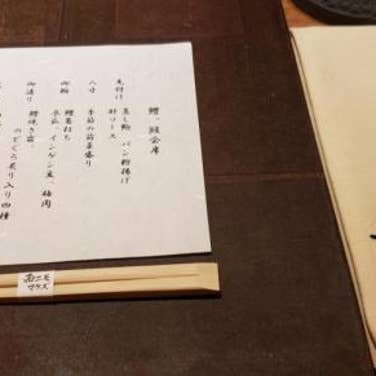 鱧、鮑会席
先付け 蒸し鮑、パン粉揚げ
肝ソース
八寸 季節の前菜盛り
御椀 鱧葛打ち
冬瓜、インゲン豆、梅肉
御造り 鱧焼き霜、
のどぐろ炙り入り四種